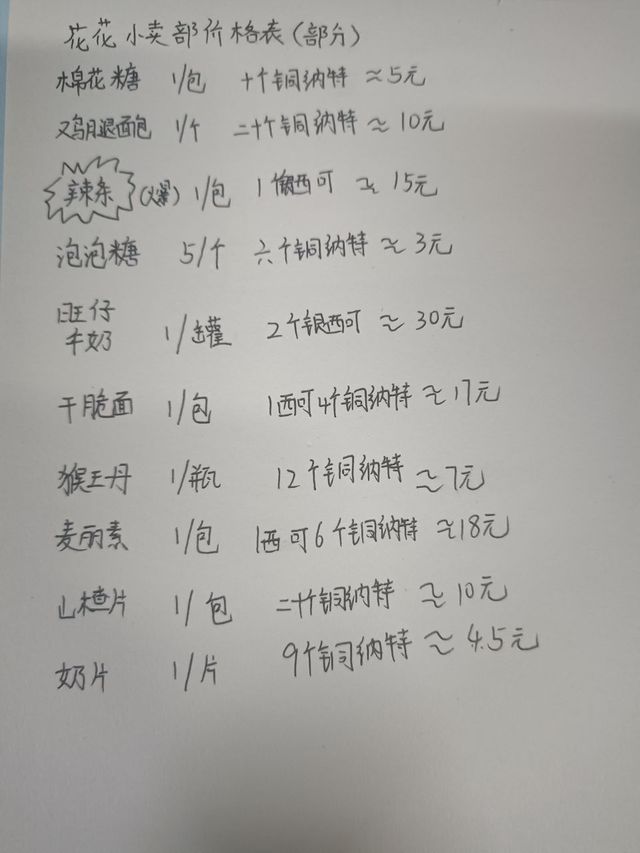 花花小卖部价格表(部分)
棉花糖 1/包 十个铜纳特 ≈5元
鸡腿面包 1/个 二十个铜纳特 ≈ 10元
辣条(爆) 1/包 1银西可 ≈ 15元
泡泡糖 5/个 六个铜纳特 ≈ 3元
旺仔
牛奶 1/罐 2个银西可 ≈ 30元
干脆面 1/包 1西可4个铜纳特 ≈17元
猴王丹 1/瓶 12个铜纳特 ≈7元
麦丽素 1/包 1西可6个铜纳特 ≈18元
山楂片 1/包 二十个铜纳特 ≈ 10元
奶片 1/片 9个铜纳特 ≈ 4.5元